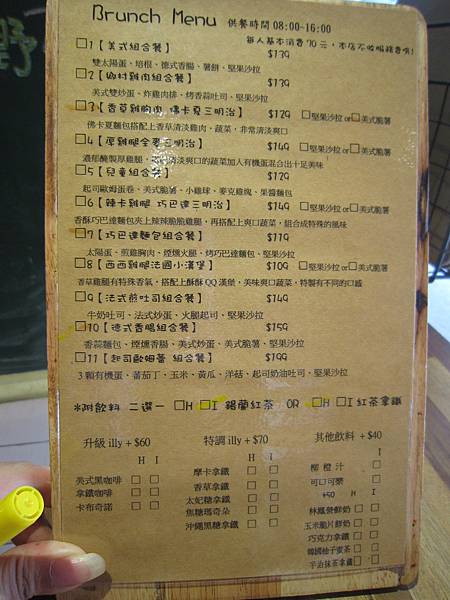 野
Brunch Menu 供餐時間 08:00~16:00
每人基本消費70元，本店不收服務費唷!
□1【美式組合餐】 $139
雙太陽蛋、培根、德式香腸、薯餅、堅果沙拉
□2【鄉村雞肉組合餐】 $139
美式雙炒蛋、炸雞肉排、烤香蒜吐司、堅果沙拉
□3【香草雞胸肉 佛卡夏三明治】 $129 □堅果沙拉or□美式脆薯
佛卡夏麵包搭配上香草清淡雞肉，蔬菜，非常清淡爽口
□4【厚雞腿全麥三明治】 $149 □堅果沙拉or□美式脆薯
濃郁醃製厚雞腿，清淡爽口的蔬菜加入有機蛋混合出十足美味
□5【兒童組合餐】 $129
起司歐姆蛋卷、美式脆薯、小雞球、麥克雞塊、果醬麵包
□6【辣卡雞腿 巧巴達三明治】 $149 □堅果沙拉or□美式脆薯
香酥巧巴達麵包夾上辣辣脆脆雞腿，再搭配上爽口蔬菜，組合成特殊的風味
□7【巧巴達麵包組合餐】 $119
太陽蛋、煎雞胸肉、煙燻火腿、烤巧巴達麵包、堅果沙拉
□8【西西雞腿法國小漢堡】 $109 □堅果沙拉or□美式脆薯
香草雞腿有特殊香氣，搭配上酥酥QQ漢堡，美味爽口蔬菜，特製有不同的口感
□9【法式煎吐司組合餐】 $149
牛奶吐司、法式炒蛋、火腿起司、堅果沙拉
□10【德式香腸組合餐】 $159
香蒜麵包、煙燻香腸、美式炒蛋、美式脆薯、堅果沙拉
□11【起司歐姆蛋 組合餐】 $199
3顆有機蛋、蕃茄丁、玉米、黃瓜、洋菇、起司奶油吐司、堅果沙拉
*附飲料 二選一 □H □I 錫蘭紅茶 OR □H □I 紅茶拿鐵
升級 illy + $60 特調 illy + $70 其他飲料 + $40
H I H I I
美式黑咖啡 □ □
拿鐵咖啡 □ □
卡布奇諾 □ □
摩卡拿鐵 □ □
香草拿鐵 □ □
太妃糖拿鐵 □ □
焦糖瑪奇朵 □ □
沖繩黑糖拿鐵 □ □
柳橙汁 □
可口可樂 □
+50 H I
林鳳營鮮奶 □ □
玉米脆片鮮奶 □ □
巧克力拿鐵 □ □
韓國柚子蜜茶 □ □
宇治抹茶拿鐵 □ □